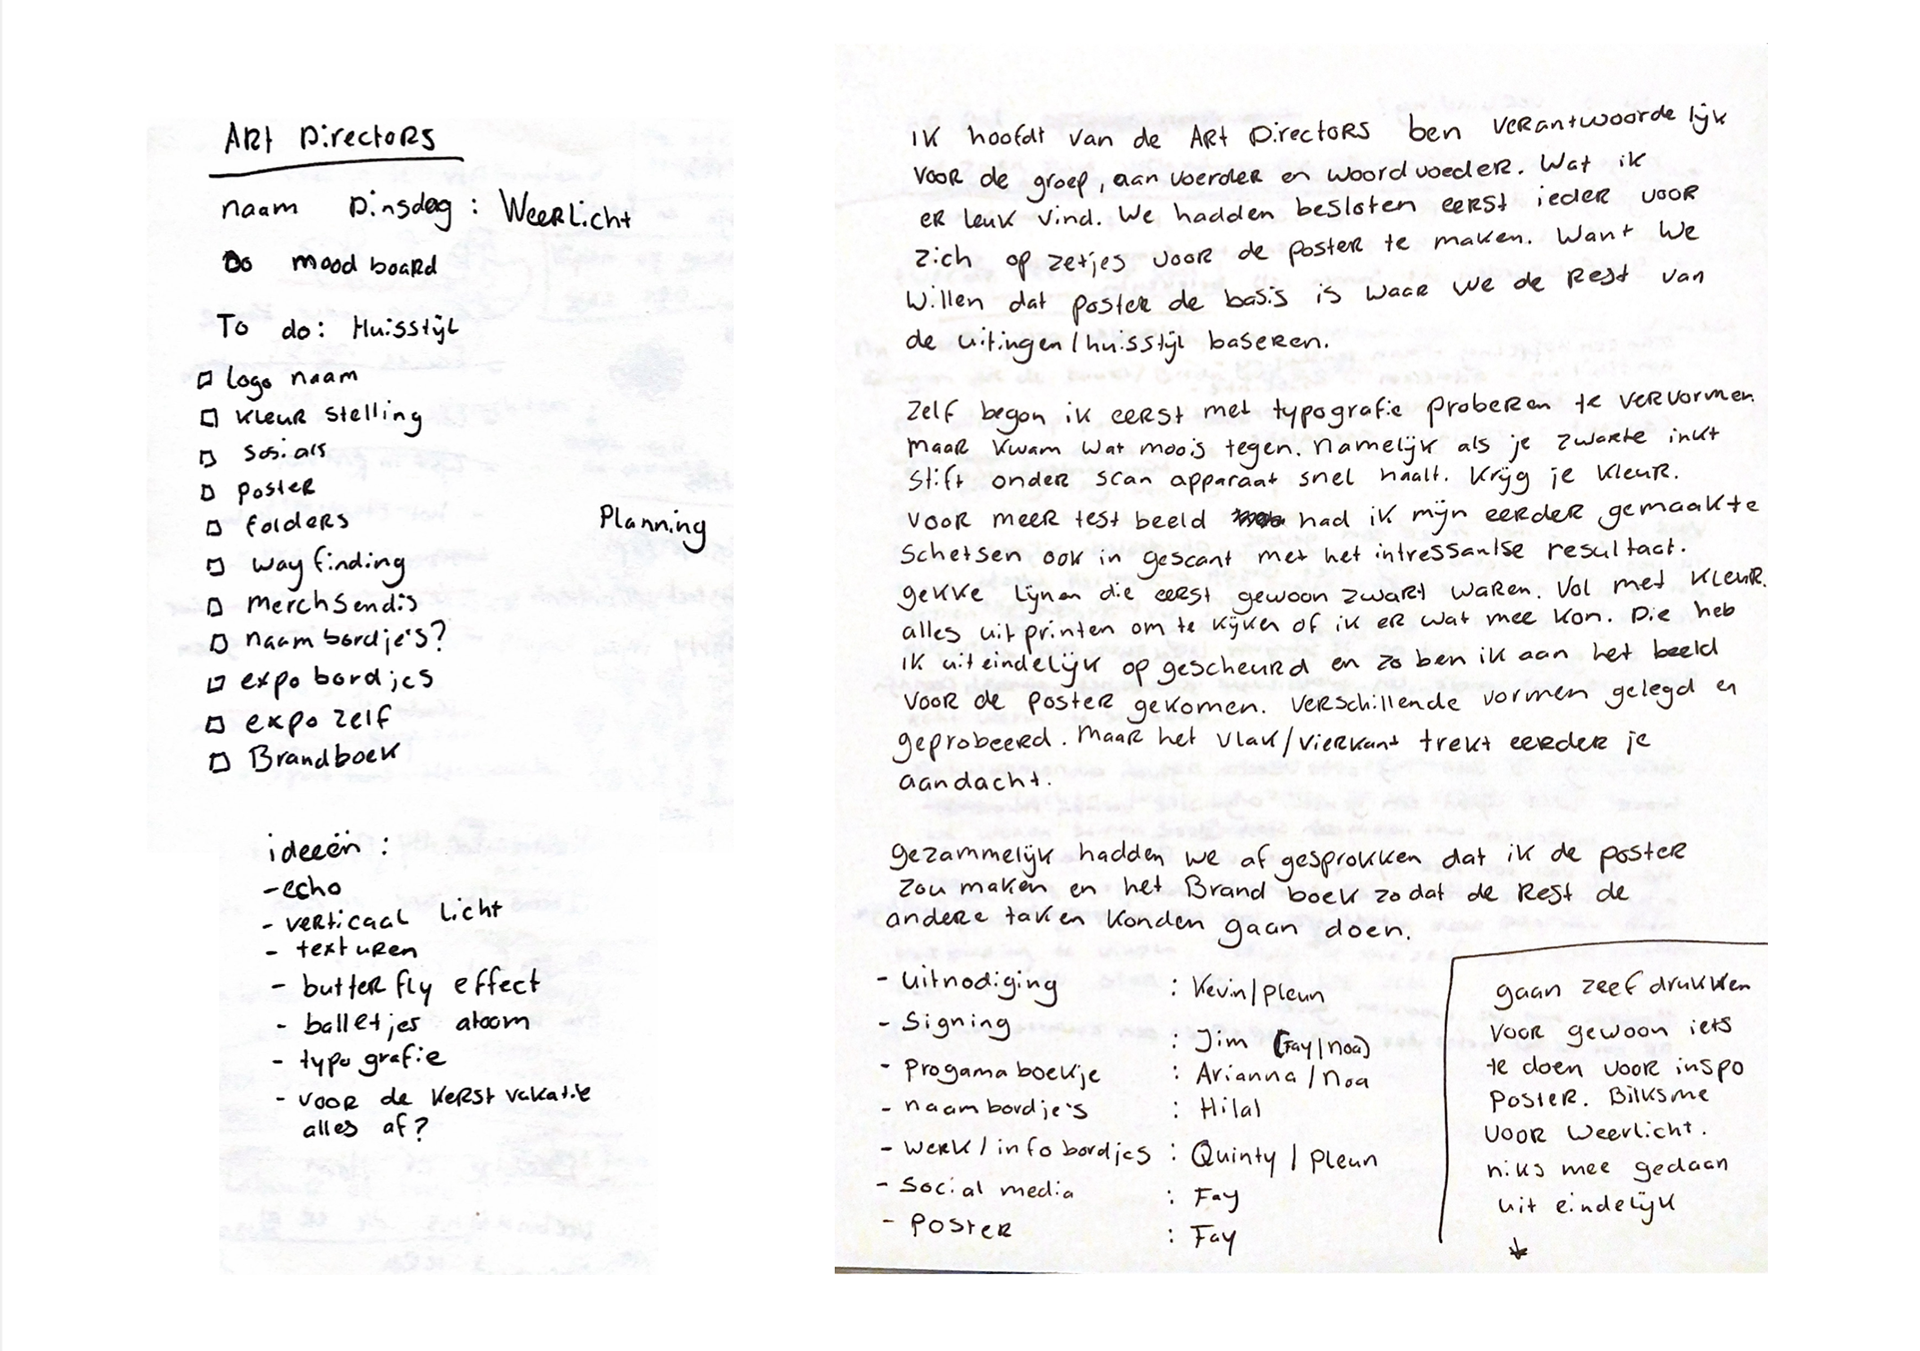 ARt DirectoRS
naam Dinsdag : WeeRLicht
Do mood boaRd
To do: Huisstijl
logo naam
kleuR stelling
Sosials
posteR
foldeRs
Planning
way finding
merchsendis
naam bordje's?
expo bordjes
expo zelf
Brandboek
ideeën :
- echo
- veRticaal licht
- textuRen
- butteR fly effect
- balletjes atoom
- typo grafie
- vooR de KeRst vakatie
alles af?
ik hoofdt van de ARt DirectoRS ben veRantwoorde lijk
vooR de groep, aan voerder en woord voeder. Wat ik
eR leuk vind. We hadden besloten eeRst ieder vooR
zich op zetjes voor de posteR te maken. Want we
willen dat posteR de basis is waaR we de Rest van
de uitingen/huisstijl baseren.
Zelf begon ik eeRst met typografie pRobeRen te veRvormen
maaR kwam wat moois tegen. Namelijk als je zwarte inkt
stift onder scan apparaat snel haalt. Krijg je kleuR.
voor meer test beeld had ik mijn eerder gemaakte
schetsen ook in gescant met het intressantse resultaat.
gekke lijnen die eeRst gewoon zwaRt waRen. Vol met kleuR.
alles uit printen om te kijken of ik eR wat mee kon. Die heb
ik uiteindelijk op gescheurd en zo ben ik aan het beeld
vooR de posteR gekomen. veRschillende vormen gelegd en
geprobeerd. Maar het vlak/vierkant trekt eerder je
aandacht.
gezammelijk hadden we af gesprokken dat ik de posteR
zou maken en het Brand boek zo dat de Rest de
andere taken konden gaan doen.
- uitnodiging : Kevin/pleun
- Signing : Jim (Fay/noa)
- progama boekje : Arianna/noa
- naam bordje's : Hilal
- weRk/info bordjes : Quinty / pleun
- Social media : Fay
- posteR : Fay
gaan zeef drukken
voor gewoon iets
te doen voor inspo
posteR. Bilksme
vooR weerlicht.
niks mee gedaan
uit eindelijk